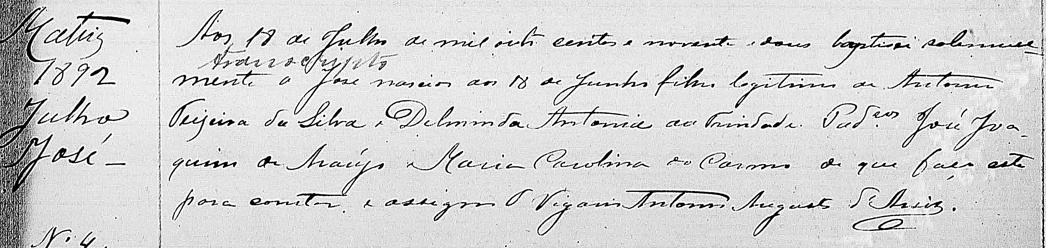 Matriz
1892
Julho
José -
Aos 18 de Julho de mil oito centos e noventa e dous baptisei solemne
mente a José nascido aos 18 de Junho filho legitimo de Antonio
Teixeira da Silva e Delminda Antonia da Trindade. Padr.os José Joa-
quim de Araújo e Maria Carolina do Carmo de que faço este
para constar e assigno O Vigario Antonio Augusto d'Assis.
N. 4